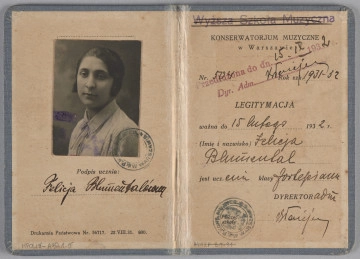 Podpis ucznia:
Felicja Blumentalówna
Drukarnia Państwowa Nr. 59717. 22 VIII.31. 600.
Wyższa Szkoła Muzyczna
KONSERWATORJUM MUZYCZNE
w Warszawie
Przedłużona do dn.
Dyr. Adm.
Nr. rok szk. 1931-32
LEGITYMACJA
ważna do 15 lutego 1932 r.
(Imię i nazwisko) Felicja
Blumental
jest ucz enn klasy fortepianu
DYREKTOR adm